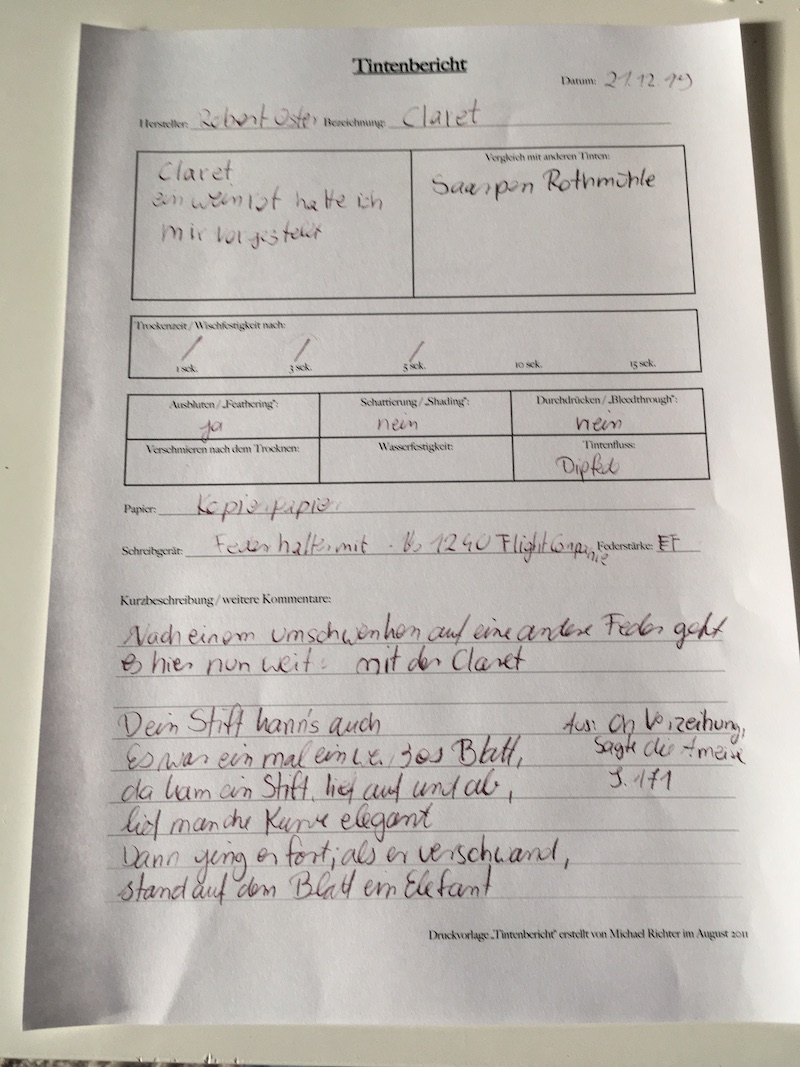 Tintenbericht
Datum: 21.12.19
Hersteller: Robert Oster Bezeichnung: Claret
Claret
ein weinrot hatte ich
mir vorgestellt
Vergleich mit anderen Tinten:
Saarpen Rothmühle
Trockenzeit / Wischfestigkeit nach:
1 sek. 3 sek. 5 sek. 10 sek. 15 sek.
Ausbluten / „Feathering“: Schattierung / „Shading“: Durchdrücken / „Bleedthrough“:
ja nein nein
Verschmieren nach dem Trocknen: Wasserfestigkeit: Tintenfluss:
Papier: Kopierpapier
Schreibgerät: Federhalter mit 1290 Flight Companie Federstärke: EF
Kurzbeschreibung / weitere Kommentare:
Nach einem umschwenken auf eine andere Feder geht
es hier nun weiter mit der Claret
Dein Stift kann's auch
Es war ein mal ein Blatt,
da kam ein Stift, lief auf und ab,
lief manche Kurve elegant
Dann ging er fort; als er verschwand,
stand auf dem Blatt ein Elefant
Aus: Oh Verzeihung,
sagte die Ameise
S. 171
Druckvorlage „Tintenbericht“ erstellt von Michael Richter im August 2011